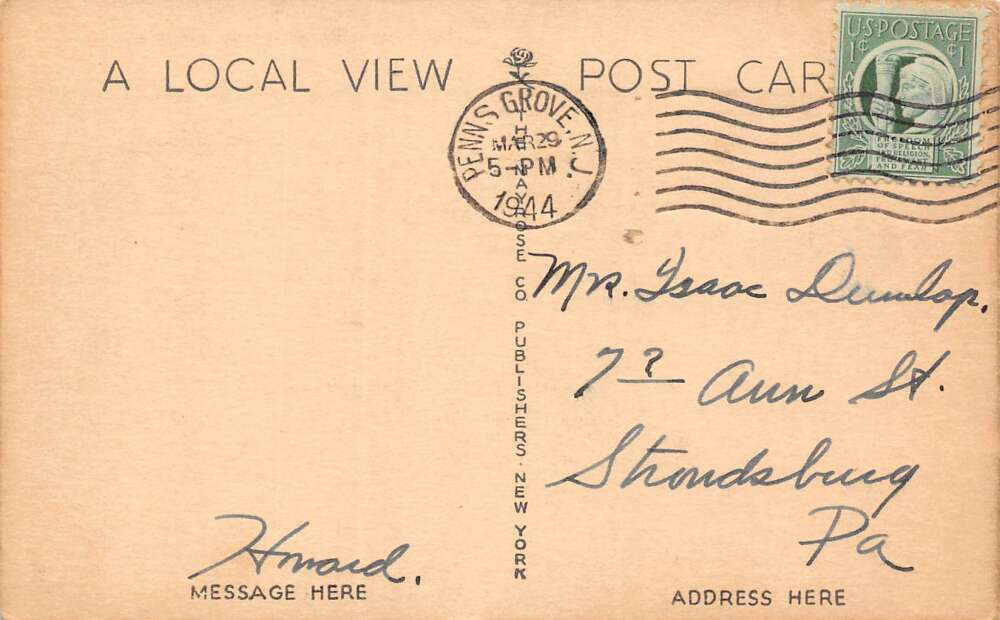 A LOCAL VIEW POST CAR
U.S. POSTAGE
1¢ ¢1
FREEDOM
OF SPEECH
AND RELIGION
FROM WANT
AND FEAR
PENNS GROVE, N.J.
MAR 29
5-PM
1944
THE MAYROSE CO. PUBLISHERS · NEW YORK
Mr. Isaac Dunlap.
7? Ann St.
Strondsburg
Pa
Howard.
MESSAGE HERE
ADDRESS HERE